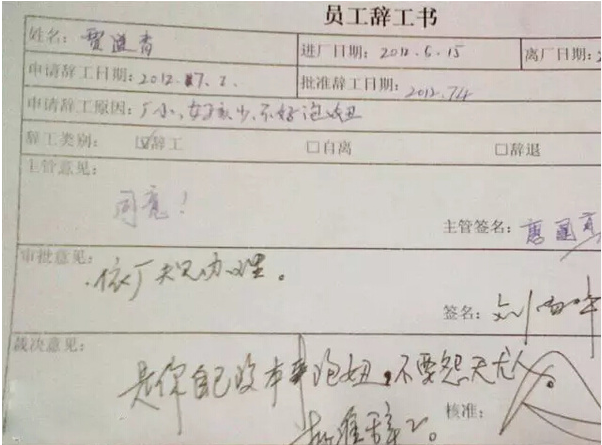 员工辞工书
姓名: 贾 青 进厂日期: 2012.6.15 离厂日期:
申请辞工日期: 2012.7.2. 批准辞工日期: 2012.7.4
申请辞工原因: 厂小、女孩少、不好泡妞
辞工类别: ☑辞工 □自离 □辞退
主管意见:
同意!
主管签名:
审批意见:
依厂规办理。
签名: 刘
裁决意见:
是你自己没本事泡妞,不要怨天尤人。
批准辞工。
核准: